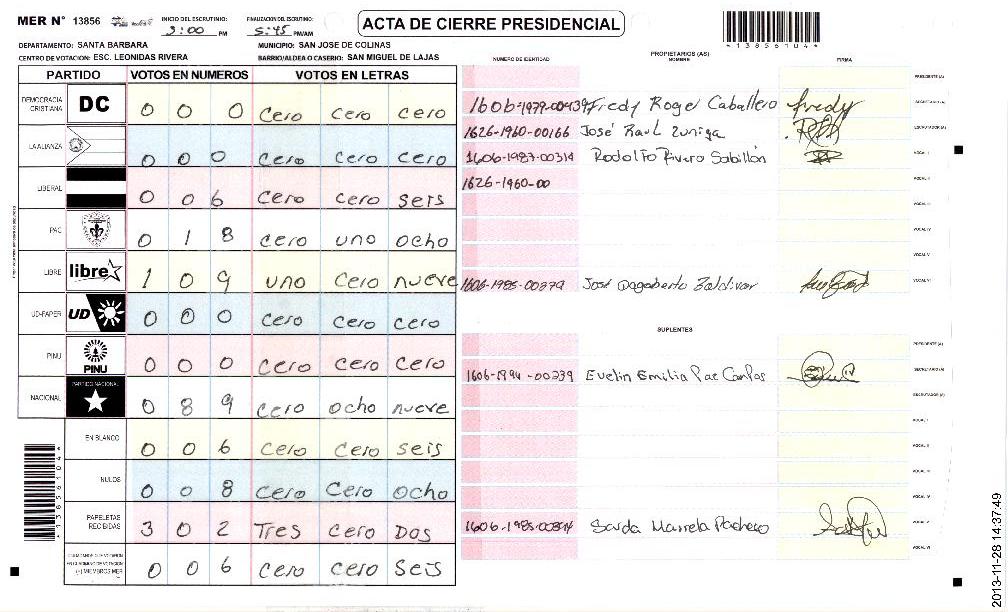 MER N° 13856 INICIO DEL ESCRUTINIO: 3:00 PM FINALIZACIÓN DEL ESCRUTINIO: 5:45 PM/AM
ACTA DE CIERRE PRESIDENCIAL
*13856104*
DEPARTAMENTO: SANTA BARBARA MUNICIPIO: SAN JOSE DE COLINAS
CENTRO DE VOTACION: ESC. LEONIDAS RIVERA BARRIO/ALDEA O CASERIO: SAN MIGUEL DE LAJAS
PARTIDO VOTOS EN NUMEROS VOTOS EN LETRAS
DEMOCRACIA CRISTIANA DC 0 0 0 cero cero cero
LA ALIANZA 0 0 0 cero cero cero
LIBERAL 0 0 6 cero cero seis
PAC 0 1 8 cero uno ocho
LIBRE libre 1 0 9 uno cero nueve
UD-FAPER UD 0 0 0 cero cero cero
PINU PINU 0 0 0 cero cero cero
NACIONAL PARTIDO NACIONAL 0 8 9 cero ocho nueve
EN BLANCO 0 0 6 cero cero seis
NULOS 0 0 8 cero cero ocho
PAPELETAS RECIBIDAS 3 0 2 Tres cero Dos
0 0 6 cero cero seis
*13856104*
NUMERO DE IDENTIDAD PROPIETARIOS (AS) NOMBRE FIRMA
PRESIDENTE (A)
1606-1979-00439 Fredy Roger Caballero fredy SECRETARIO (A)
1626-1960-00166 José Raul Zuniga ESCRUTADOR (A)
1606-1983-00314 Rodolfo Rivera Sabillón VOCAL I
1626-1960-00 VOCAL II
VOCAL III
VOCAL IV
VOCAL V
1606-1985-00379 José Dagoberto Zaldivar VOCAL VI
SUPLENTES
PRESIDENTE (A)
1606-1994-00239 Evelin Emilia Paz SECRETARIO (A)
ESCRUTADOR (A)
VOCAL I
VOCAL II
VOCAL III
VOCAL IV
Marela Pacheco VOCAL V
VOCAL VI
2013-11-28 14:37:49